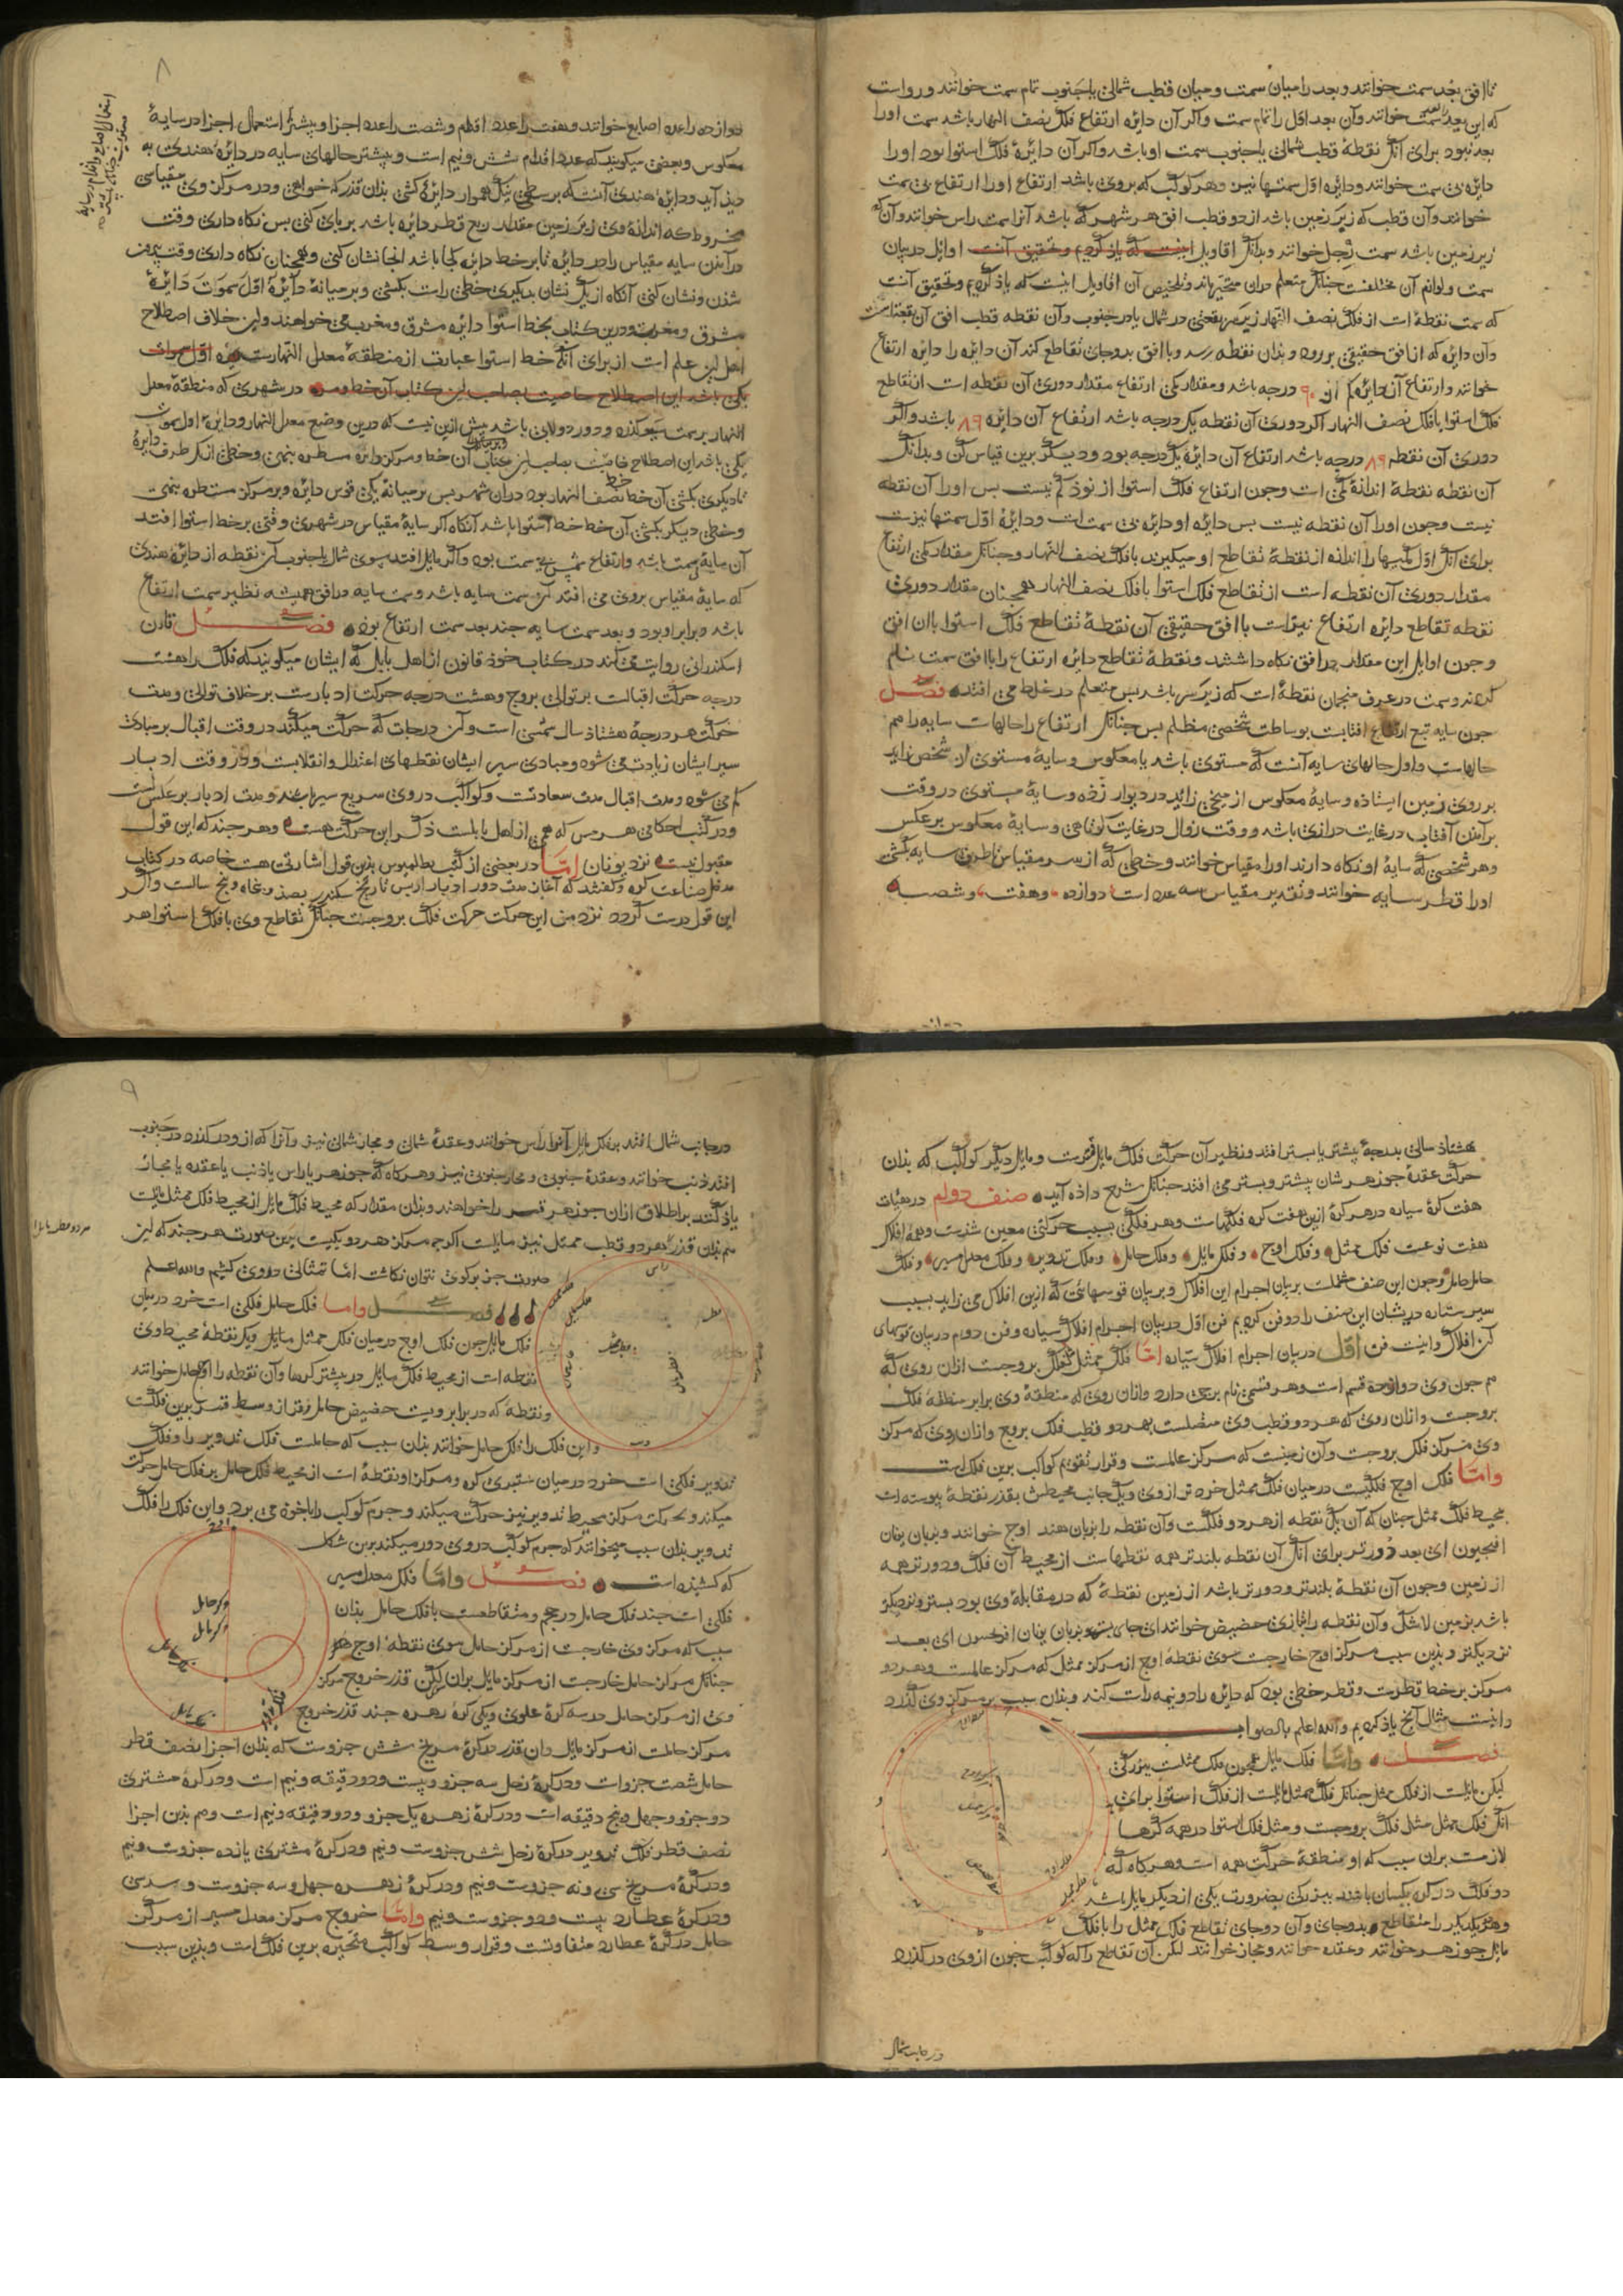 تا افق بعد سمت خوانند و بعد را میان سمت و میان قطب شمالی یا جنوب تمام سمت خوانند و رواست
که این بعد را سمت خوانند و آن بعد اول را تمام سمت و اگر آن دایره ارتفاع فلک نصف النهار باشد سمت او را
بعد نبود برای آنک نقطهٔ قطب شمالی یا جنوب سمت او باشد و اگر آن دایرهٔ فلک استوا بود او را
دایره بی سمت خوانند و دایره اول سمتها نیز و هر کوکب که بروی باشد ارتفاع او را ارتفاع بی سمت
خوانند و آن قطب که زیر زمین باشد از دو قطب افق هر شهر که باشد آنرا سمت راس خوانند و آن که
زیر زمین باشد سمت رجل خوانند و بدانک اقاویل اینست که یاذ کردیم و تحقیق آنست اوایل در بیان
سمت و لوازم آن مختلفست چنانک متعلم دران متحیر ماند و تلخیص آن اقاویل اینست که یاذ کردیم و تحقیق آنست
که سمت نقطهٔ است از فلک نصف النهار زیر سر بقعتی در شمال یا در جنوب و آن نقطه قطب افق آن بقعتاست
و آن دایره که از افق حقیقی بر رود و بذان نقطه رسد و با افق بدو جای تقاطع کند آن دایره را دایره ارتفاع
خوانند و ارتفاع آن دایره از ۹۰ درجه باشد و مقدار یکی ارتفاع مقدار دوری آن نقطه است از تقاطع
فلک استوا با فلک نصف النهار اگر دوری آن نقطه یک درجه باشد ارتفاع آن دایره ۸۹ باشد و اگر
دوری آن نقطه ۸۹ درجه باشد ارتفاع آن دایره یک درجه بود و دیگر برین قیاس کن و بدانک
آن نقطه نقطهٔ اندازهٔ کمی است و چون ارتفاع فلک استوا از نوذ کم نیست بس او را آن نقطه
نیست و چون او را آن نقطه نیست بس دایره او دایره بی سمت است و دایرهٔ اول سمتها نیزست
برای آنک اول سمتها را اندازه از نقطهٔ تقاطع او میگیرند با فلک نصف النهار و چنانک مقدار یکی ارتفاع
مقدار دوری آن نقطه است از تقاطع فلک استوا با فلک نصف النهار همچنان مقدار دوری
نقطه تقاطع دایره ارتفاع نیزاست با افق حقیقی آن نقطهٔ تقاطع فلک استوا با آن افق
و چون اوایل این مقدار در افق نکاه داشتند و نقطهٔ تقاطع دایره ارتفاع را با افق سمت نام
کردند و سمت در عرف منجمان نقطهٔ است که زیر سر باشد بس متعلم در غلط می افتد فصل
چون سایه تبع ارتفاع افتابست بوساطت شخصی مظلم بس چنانک ارتفاع را حالهاست سایه را هم
حالهاست و اول حالهای سایه آنست که مستوی باشد یا معکوس و سایهٔ مستوی از شخص زاید
بر روی زمین ایستاذه و سایهٔ معکوس از میخی زاید در دیوار زده و سایهٔ مستوی در وقت
برآمدن آفتاب در غایت درازی باشد و وقت زوال در غایت کوتاهی و سایهٔ معکوس بر عکس
و هر شخصی که سایهٔ او نکاه دارند او را مقیاس خوانند و خطی که از سر مقیاس تا طرف سایه بکشی
او را قطر سایه خوانند و تقدیر مقیاس سه عدد است دوازده و هفت و شصت
دوازده
۸
دوازده را عدد اصابع خوانند و هفت را عدد اقدام و شصت را عدد اجزا و بیشتر استعمال اجزا در سایهٔ
معکوس و بعضی میکویند که عدد اقدام شش و نیم است و بیشتر حالهای سایه در دایرهٔ هندی به
دید آید و دایرهٔ هندی آنست که بر سطحی نیک هموار دایرهٔ کشی بذان قدر که خواهی و در مرکز وی مقیاسی
مخروط که اندازهٔ وی زبر زمین مقدار ربع قطر دایره باشد بر پای کنی بس نکاه داری وقت
درآمدن سایه مقیاس را در دایره تا بر خط دایره کجا باشد آنجا نشان کنی و همچنان نکاه داری وقت بیرون
شدن و نشان کنی آنکاه از یک نشان بدیکری خطی راست بکشی و بر میانهٔ دایرهٔ اول سموت دایرهٔ
مشرق و مغربست و درین کتاب بخط استوا دایره مشرق و مغرب می خواهند و این خلاف اصطلاح
اهل این علم است از برای آنک خط استوا عبارت از منطقهٔ معدل النهارست
یکی باشد این اصطلاح خاصیت بصاحب این کتاب آن خط و مر در شهری که منطقهٔ معدل
النهار بر سمت سر کذرد و دور دولابی باشد بیش ازین نیست که درین وضع معدل النهار و دایرهٔ اول سموت
یکی باشد این اصطلاح خاصیت بصاحب این کتاب آن خط و مرکز دایره مسطره بنهی و خطی از یک طرف دایره
تا دیکری بکشی آن خط خط نصف النهار بود دران شهر بس بر میانهٔ یکی قوس دایره و بر مرکز مسطره بنهی
و خطی دیکر بکشی آن خط خط استوا باشد آنکاه اگر سایهٔ مقیاس در شهری وقتی بر خط استوا افتد
آن سایه بی سمت باشد و ارتفاع شمس بی سمت بود و اگر مایل افتد بسوی شمال یا جنوب آن نقطه از دایرهٔ هندی
که سایهٔ مقیاس بروی می افتد آن سمت سایه باشد و سمت سایه در افق همیشه نظیر سمت ارتفاع
باشد و برابر او بود و بعد سمت سایه چند بعد سمت ارتفاع بود فصل قارن
اسکندرانی روایت می کند در کتاب خود قانون از اهل بابل که ایشان میکویند که فلک را هشت
درجه حرکت اقبالست بر توالی بروج و هشت درجه حرکت ادبارست بر خلاف توالی و مدت
حرکت هر درجهٔ هشتاذ سال شمسی است و آن درجات که حرکت میکند در وقت اقبال بر مبادی
سیر ایشان زیادت می شود و مبادی سیر ایشان نقطهای اعتدال و انقلابست و در وقت ادبار
کم می شود و مدت اقبال مدت سعادتست و کواکب در وی سریع سیر باشد و مدت ادبار بر عکس است
و در کتب احکامی هرمس که هم از اهل بابلست ذکر این حرکت هست و هر چند که این قول
مقبول نیست نزد یونان اما در بعضی از کتب بطلمیوس بدین قول اشارتی هست خاصه در کتاب
مدخل صناعت کره و کفتند که آغاز مدت دور ادبار از بس تاریخ سکندر بصد و پنجاه و پنج سالست و اگر
این قول درست کردد نزد من این حرکت حرکت فلک بروجست چنانک تقاطع وی با فلک استوا هر
هشتاذ سالی بدرجهٔ بیشتر یا بستر افتد و نظیر آن حرکت فلک مایل قمرست و مایل دیگر کواکب که بذان
حرکت عقدهٔ جوزهر شان بیشتر و بستر می افتد چنانک شرح داذه آید صنف دوم در هیات
هفت کرهٔ سیاره در هر کرهٔ ازین هفت کره فلکهاست و هر فلکی بسبب حرکتی معین شذست و همه افلاک
هفت نوعست فلک ممثل و فلک اوج و فلک مایل و فلک حامل و فلک تدویر و فلک معدل مسیر و فلک
حامل حامل و چون این صنف مشتملست بر بیان اجرام این افلاک و بر بیان قوسهائی که ازین افلاک می زاید بسبب
سیر ستاره در یشان این صنف را دو فن کردیم فن اول در بیان اجرام افلاک سیاره و فن دوم در بیان قوسهای
آن افلاک و اینست فن اول در بیان اجرام افلاک سیاره اما فلک ممثل فلک بروجست ازان روی که
هم چون وی دوازده قسم است و هر قسمی نام برجی دارد و ازان روی که منطقهٔ وی برابر منطقهٔ فلک
بروجست و ازان روی که هر دو قطب وی متصلست بهر دو قطب فلک بروج و ازان روی که مرکز
وی مرکز فلک بروجست و آن زمینست که مرکز عالمست و قرار تقویم کواکب برین فلک است
و اما فلک اوج فلکیست در میان فلک ممثل خرد تر از وی و یک جانب محیطش بقدر نقطهٔ پیوسته است
بمحیط فلک ممثل چنان که آن یک نقطه از هر دو فلکست و آن نقطه را بزبان هند اوج خوانند و بزبان یونان
افیجیون ای بعد دورتر برای آنک آن نقطه بلندتر همه نقطهاست از محیط آن فلک و دورتر همه
از زمین و چون آن نقطهٔ بلندتر و دورتر باشد از زمین نقطهٔ که در مقابلهٔ وی بود بستر و نزدیکتر
باشد بزمین لا شک و آن نقطه را بتازی حضیض خوانند ای جای بستر و بزبان یونان ای بعد
نزدیکتر و بدین سبب مرکز اوج خارجست سوی نقطهٔ اوج از مرکز ممثل که مرکز عالمست و هر دو
مرکز بر خط قطرست و قطر خطی بود که دایره را دو نیمه راست کند و بذان سبب بر مرکز وی کذرد
و اینست مثال آنچ یاذ کردیم والله اعلم بالصواب
فصل و اما فلک مایل همچون فلک ممثلست ببزرکی
لیکن مایلست از فلک ممثل چنانک فلک ممثل مایلست از فلک استوا برای
آنک فلک ممثل مثل فلک بروجست و مثل فلک استوا در همه کرها
لازمست بران سبب که او منطقهٔ حرکت همه است و هر کاه که
دو فلک در کره یکسان باشند ببزرکی بضرورت یکی از دیکر مایل باشد
و هر یکدیکر را متقاطع بدو جای و آن دو جای تقاطع فلک ممثل را با فلک
مایل جوزهر خوانند و عقده خوانند و مجاز خوانند لیکن آن تقاطع را که کوکب چون از وی در کذرد
در جانب شمال
۹
در جانب شمال افتد بر فلک مایل آنرا راس خوانند و عقدهٔ شمالی و مجاز شمالی نیز و آنرا که از و در کذرد در جنوب
افتد ذنب خوانند و عقدهٔ جنوبی و مجاز جنوبی نیز و هر کاه که جوزهر یا راس یا ذنب یا عقده یا مجاز
یاذ کنند بر اطلاق ازان جوزهر قمر را خواهند و بدان مقدار که محیط فلک مایل از محیط فلک ممثل مایلست
هم بذان قدر هر دو قطب ممثل نیز مایلست اگر چه مرکز هر دو یکیست بدین صورت هر چند که این
صورت جز بر کوی نتوان نکاشت اما تمثالی در وی کشیم والله اعلم
راس
ذنب
فصل و اما فلک حامل فلکی است خرد در میان
فلک مایل چون فلک اوج در میان فلک ممثل مایل و یک نقطهٔ محیط وی
نقطه است از محیط فلک مایل در بیشتر کرها و آن نقطه را اوج حامل خوانند
و نقطه که در برابر ویست حضیض حامل و قرار وسط قمر برین فلکست
و این فلک را فلک حامل خوانند بذان سبب که حاملست فلک تدویر را و فلک
تدویر فلکی است خرد در میان ستبری کره و مرکز او نقطهٔ است از محیط فلک حامل بر فلک حامل حرکت
میکند و بحرکت مرکز محیط تدویر نیز حرکت میکند و جرم کوکب را با خود می برد و این فلک را فلک
تدویر بذان سبب میخوانند که جرم کوکب در وی دور میکند برین شکل
که کشیذه است فصل و اما فلک معدل مسیر
فلکی است چند فلک حامل در حجم و متقاطعست با فلک حامل بذان
سبب که مرکز وی خارجست از مرکز حامل سوی نقطهٔ اوج
چنانک مرکز حامل خارجست از مرکز مایل بران لیکن قدر خروج مرکز
وی از مرکز حامل در سه کرهٔ علوی و یکی کرهٔ زهره چند قدر خروج
مرکز حاملست از مرکز مایل و آن قدر در کرهٔ مریخ شش جزوست که بذان اجزا نصف قطر
حامل شصت جزو است و در کرهٔ زحل سه جزو و بیست و دو دقیقه و نیم است و در کرهٔ مشتری
دو جزو و چهل و پنج دقیقه است و در کرهٔ زهره یک جزو و دو دقیقه و نیم است و هم بدین اجزا
نصف قطر فلک تدویر در کرهٔ زحل شش جزوست و نیم و در کرهٔ مشتری یازده جزوست و نیم
و در کرهٔ مریخ سی و نه جزوست و نیم و در کرهٔ زهره چهل و سه جزوست و سدسی
و در کرهٔ عطارد بیست و دو جزوست و نیم و اما خروج مرکز معدل مسیر از مرکز
حامل در کرهٔ عطارد متفاوتست و قرار وسط کواکب متحیره برین فلک است و بدین سبب
مرکز حامل
مرکز مایل